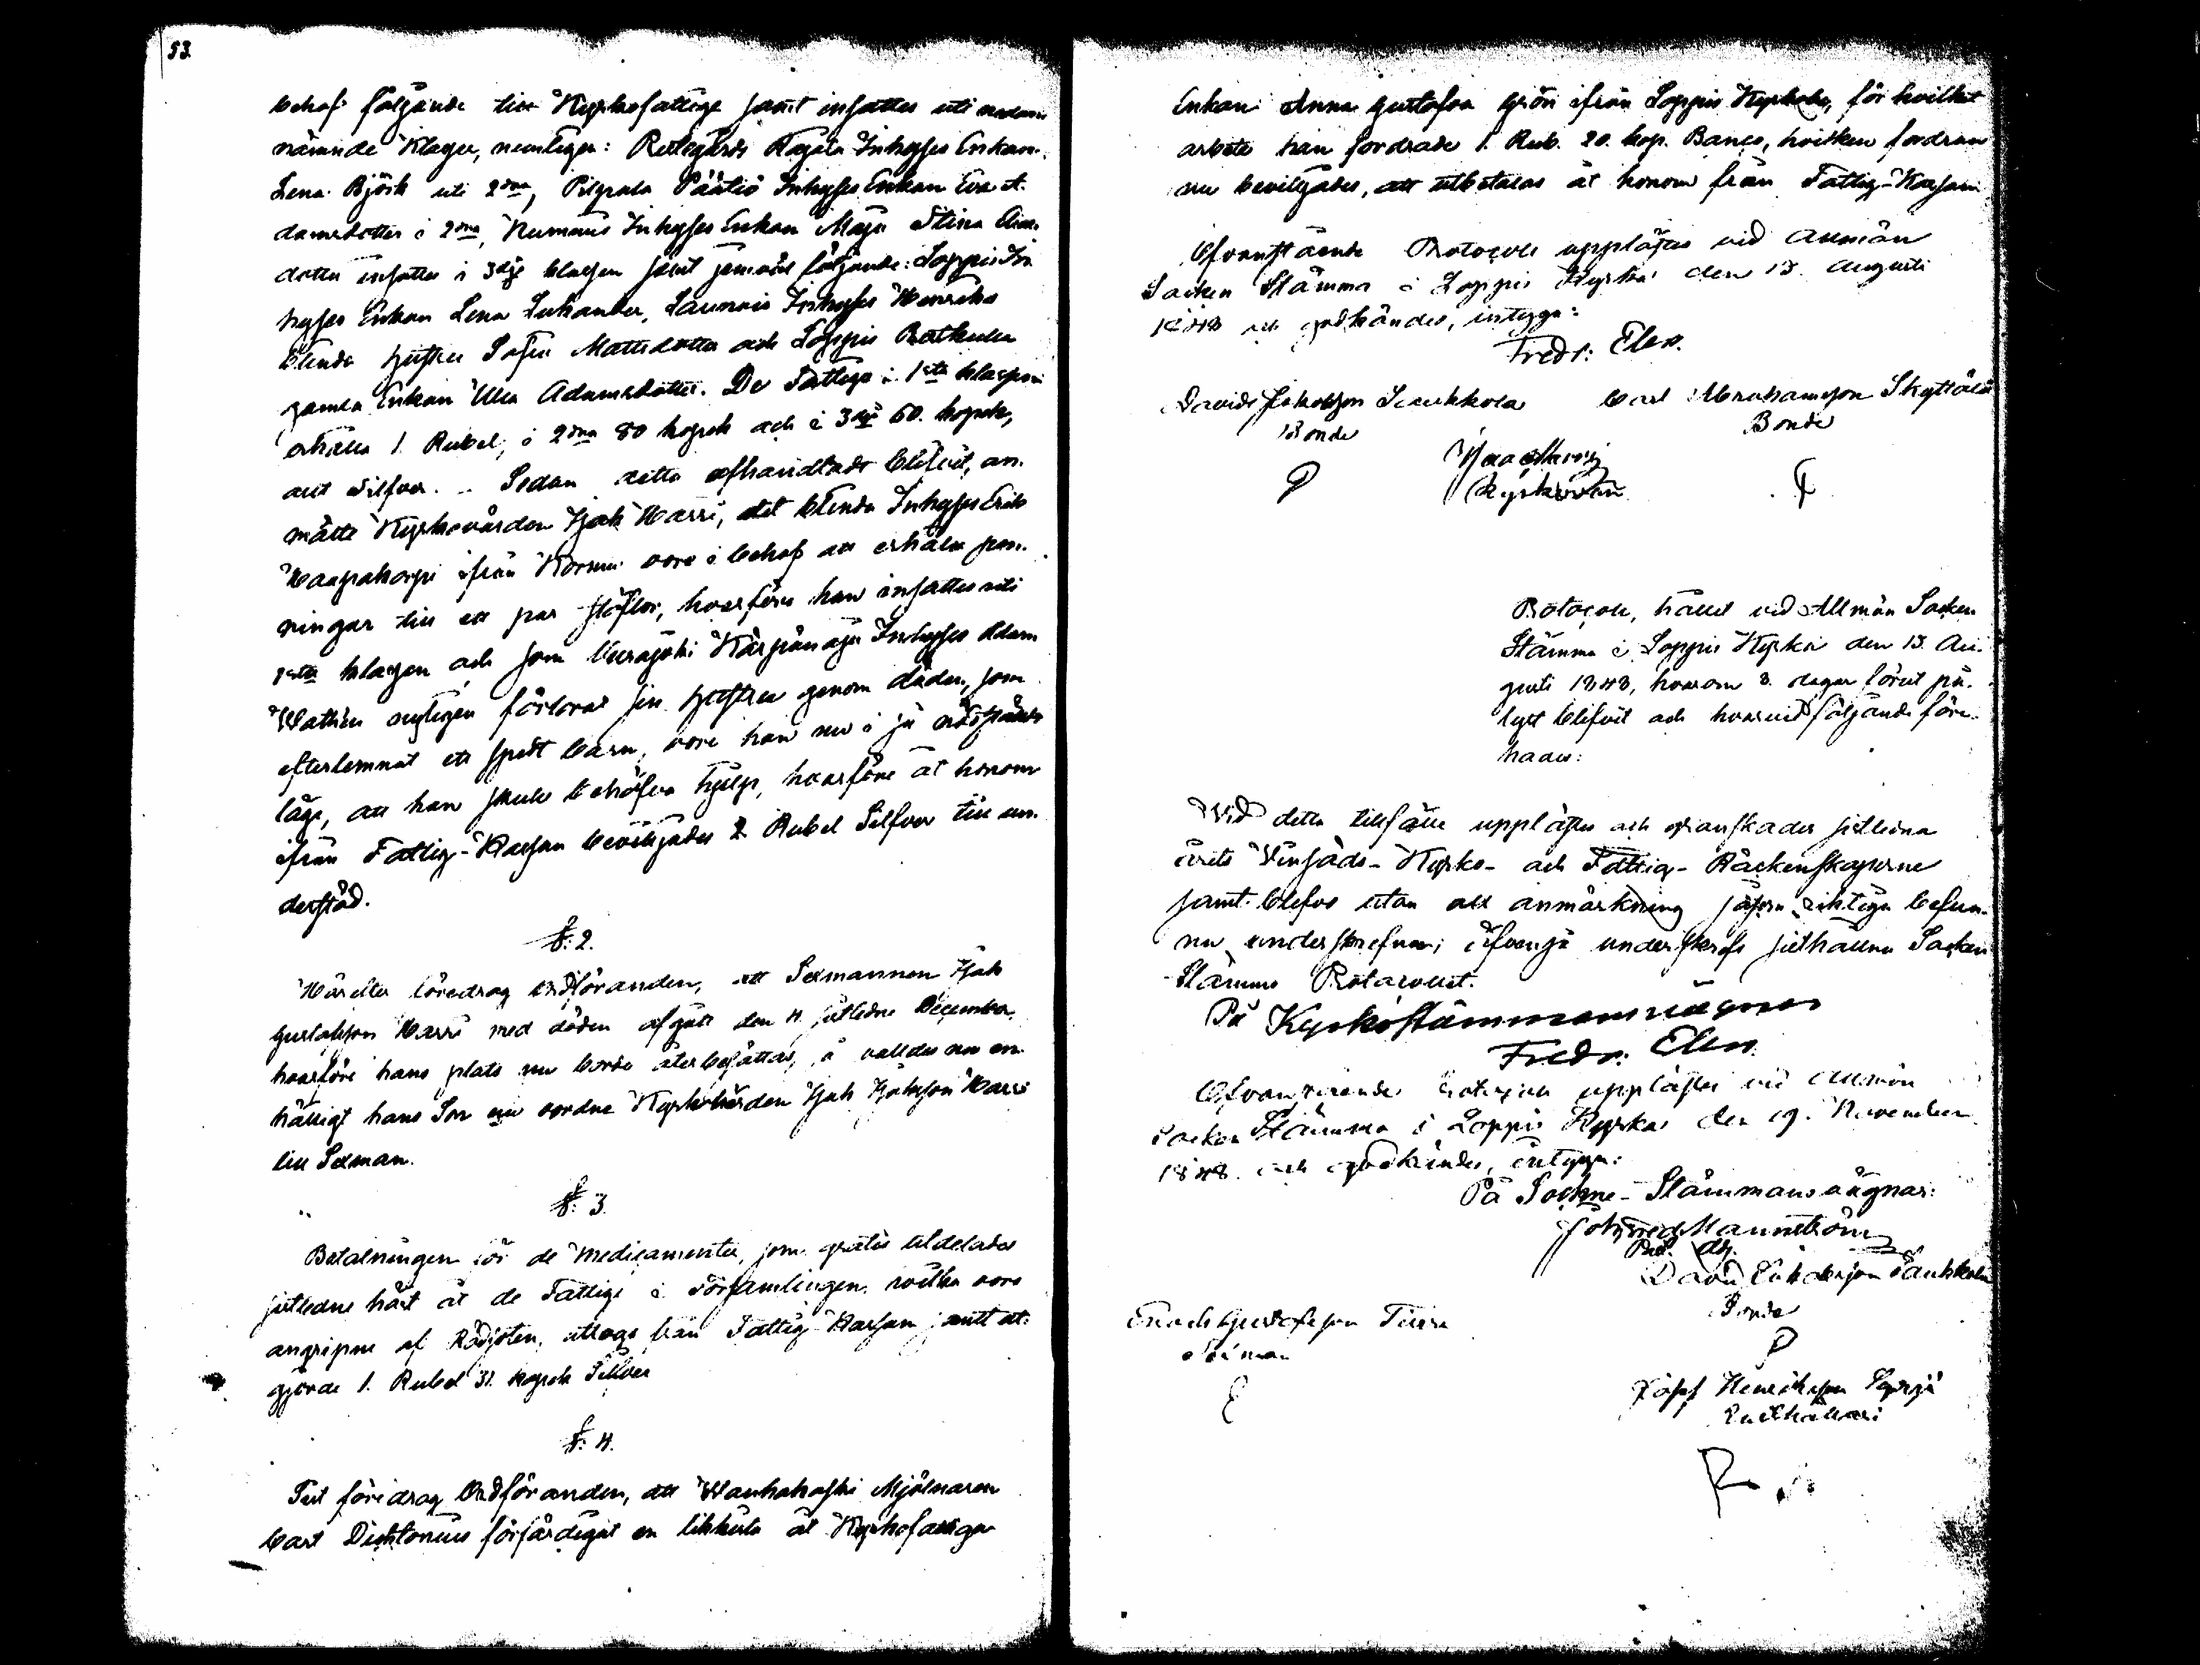 53.
behof följande till Kyrkofattige samt insattes uti nedan-
nämnde Klasser, nemligen: Inhyses Enkan
Lena Björk uti 2dra, Pilpala Päätiö Inhyses Enkan Eva A-
damsdotter i 2dra, Inhyses Enkan Maja Stina
dotter insattes i 3dje klassen samt jemväl följande: Loppis In-
hyses Enkan Lena, Inhyses Henriks
blinda hustru Sofia Mattsdotter och Loppis
gamla Enkan Ulla Adamsdotter. De Fattige i 1sta klassen
erhålla 1 Rubel, i 2dra 80 kopek och i 3dje 60. kopek,
allt Silfver. - Sedan detta afhandladt blifvit, an-
mälte Kyrkovärden Isak Harri, att blinda Inhyses Erik
Haapakorpi ifrån vore i behof att erhålla pen-
ningar till ett par stöflor, hvarföre han insattes uti
1sta klassen och som Inhyses Adam
nyligen förlorat sin hustru genom döden, som
efterlemnat ett spädt barn, vore han nu i så nödstäldt
läge, att han skulle behöfva hjelp, hvarföre åt honom
ifrån Fattig-Kassan beviljades 2 Rubel Silfver till un-
derstöd.
§. 2.
Härefter föredrog Ordföranden, att Sexmannen Isak
Gustafsson Harri med döden afgått den 4. sistledne December,
hvarföre hans plats nu borde återbesättas, då valdes nu en-
hälligt hans Son nu vordne Kyrkovärden Isak Isaksson Harri
till Sexman.
§. 3.
Betalningen för de medicamenter, som gratis utdelades
sistledne höst åt de Fattige i Församlingen, vilka voro
angripne af Rödsoten, uttogs från Fattig-Kassan samt ut-
gjorde 1. Rubel 31. kopek Silfver
§. 4.
Sist föredrog Ordföranden, att Mjölnaren
Carl Dicktonius förfärdigat en likkista åt Kyrkofattiga
Enkan Anna Gustafva Grön ifrån Loppis Kyrkoby, för hvilket
arbete han fordrade 1. Rub. 20. kop. Banco, hvilken fordran
nu beviljades, att utbetalas åt honom från Fattig-Kassan
Ofvanstående Protocoll upplästes vid Allmän
Socken Stämma i Loppis Kyrka den 13. Augusti
1848 och godkändes, intyga:
Fredr: Elen.
David Jakobsson Saukkola Carl Abrahamsson Skyttälä
Bonde Bonde
Isaac Harri
Kyrkovärd
Protocoll, hållet vid Allmän Socken
Stämma i Loppis Kyrka den 13. Au-
gusti 1848, hvarom 8. dagar förut på-
lyst blifvit och hvarvid följande före-
hades:
Vid detta tillfälle upplästes och granskades sistledna
årets Vinsäds- Kyrko- och Fattig- Räckenskaperne
samt blefvo utan all anmärkning såsom riktiga befun-
na underskrefna; äfvenså underskrefs sisthållna Socken
Stämmo Protocollet.
På Kyrkostämmans vägnar
Fredr: Elen.
Ofvanstående Protocoll upplästes vid Allmän
Socken Stämma i Loppis Kyrka den 19. November
1848. och godkändes, intyga:
På Sockne-Stämmans vägnar:
Past. Adj.
David Saukkola
Bonde
Enoch Gustafsson
Sexman
Josef Henriksson